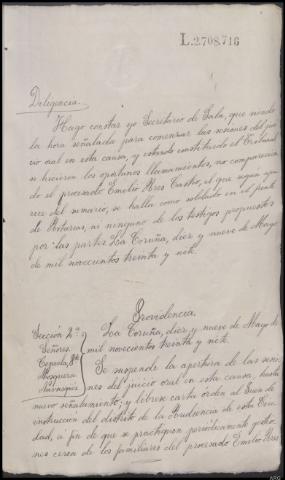 L.2.708.716
Diligencia.
Hago constar yo Secretario de Sala, que siendo
la hora señalada para comenzar las sesiones del jui-
cio oral en esta causa, y estando constituido el Tribunal
se hicieron los oportunos llamamientos, no comparecien-
do el procesado Emilio Ares Castro, el que segun apa-
rece del sumario, se halla como soldado en el frente
de Asturias, ni ninguno de los testigos propuestos
por las partes. La Coruña, diez y nueve de Mayo
de mil novecientos treinta y siete.
Providencia.
Sección 2ª La Coruña, diez y nueve de Mayo de
Señores mil novecientos treinta y siete.
Cepeda, Se suspende la apertura de las sesio-
Mosquera nes del juicio oral en esta causa, hasta
nuevo señalamiento; y librese carta orden al Juez de
instrucción del distrito de la Audiencia de esta Ciu-
dad, a fin de que se practiquen periódicamente gestio-
nes cerca de los familiares del procesado Emilio Ares